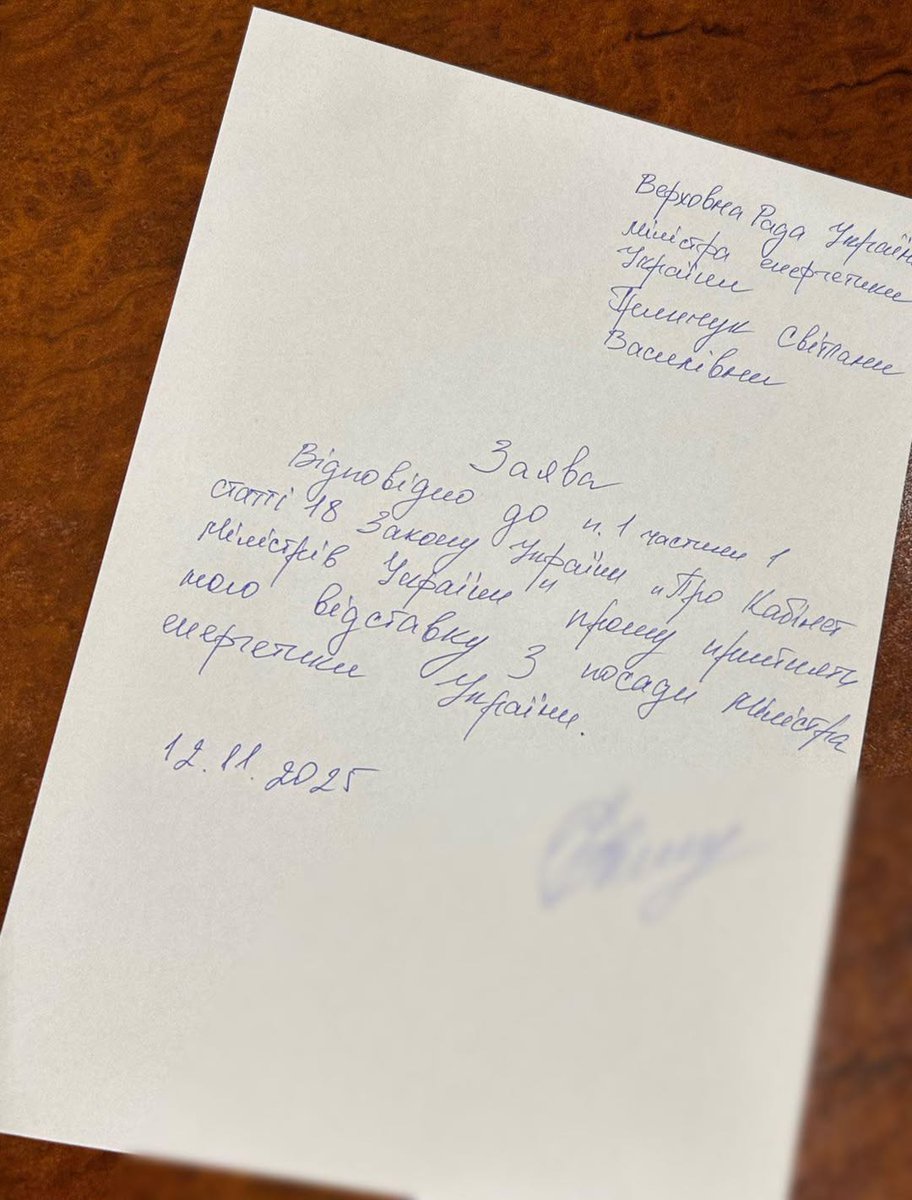 Верховна Рада Україн
Міністра енергетики
України
Гринчук Світлани
Василівни
Заява
Відповідно до п.1 частини 1
статті 18 Закону України „Про Кабінет
Міністрів України" прошу прийняти
мою відставку з посади Міністра
енергетики України.
12.11.2025